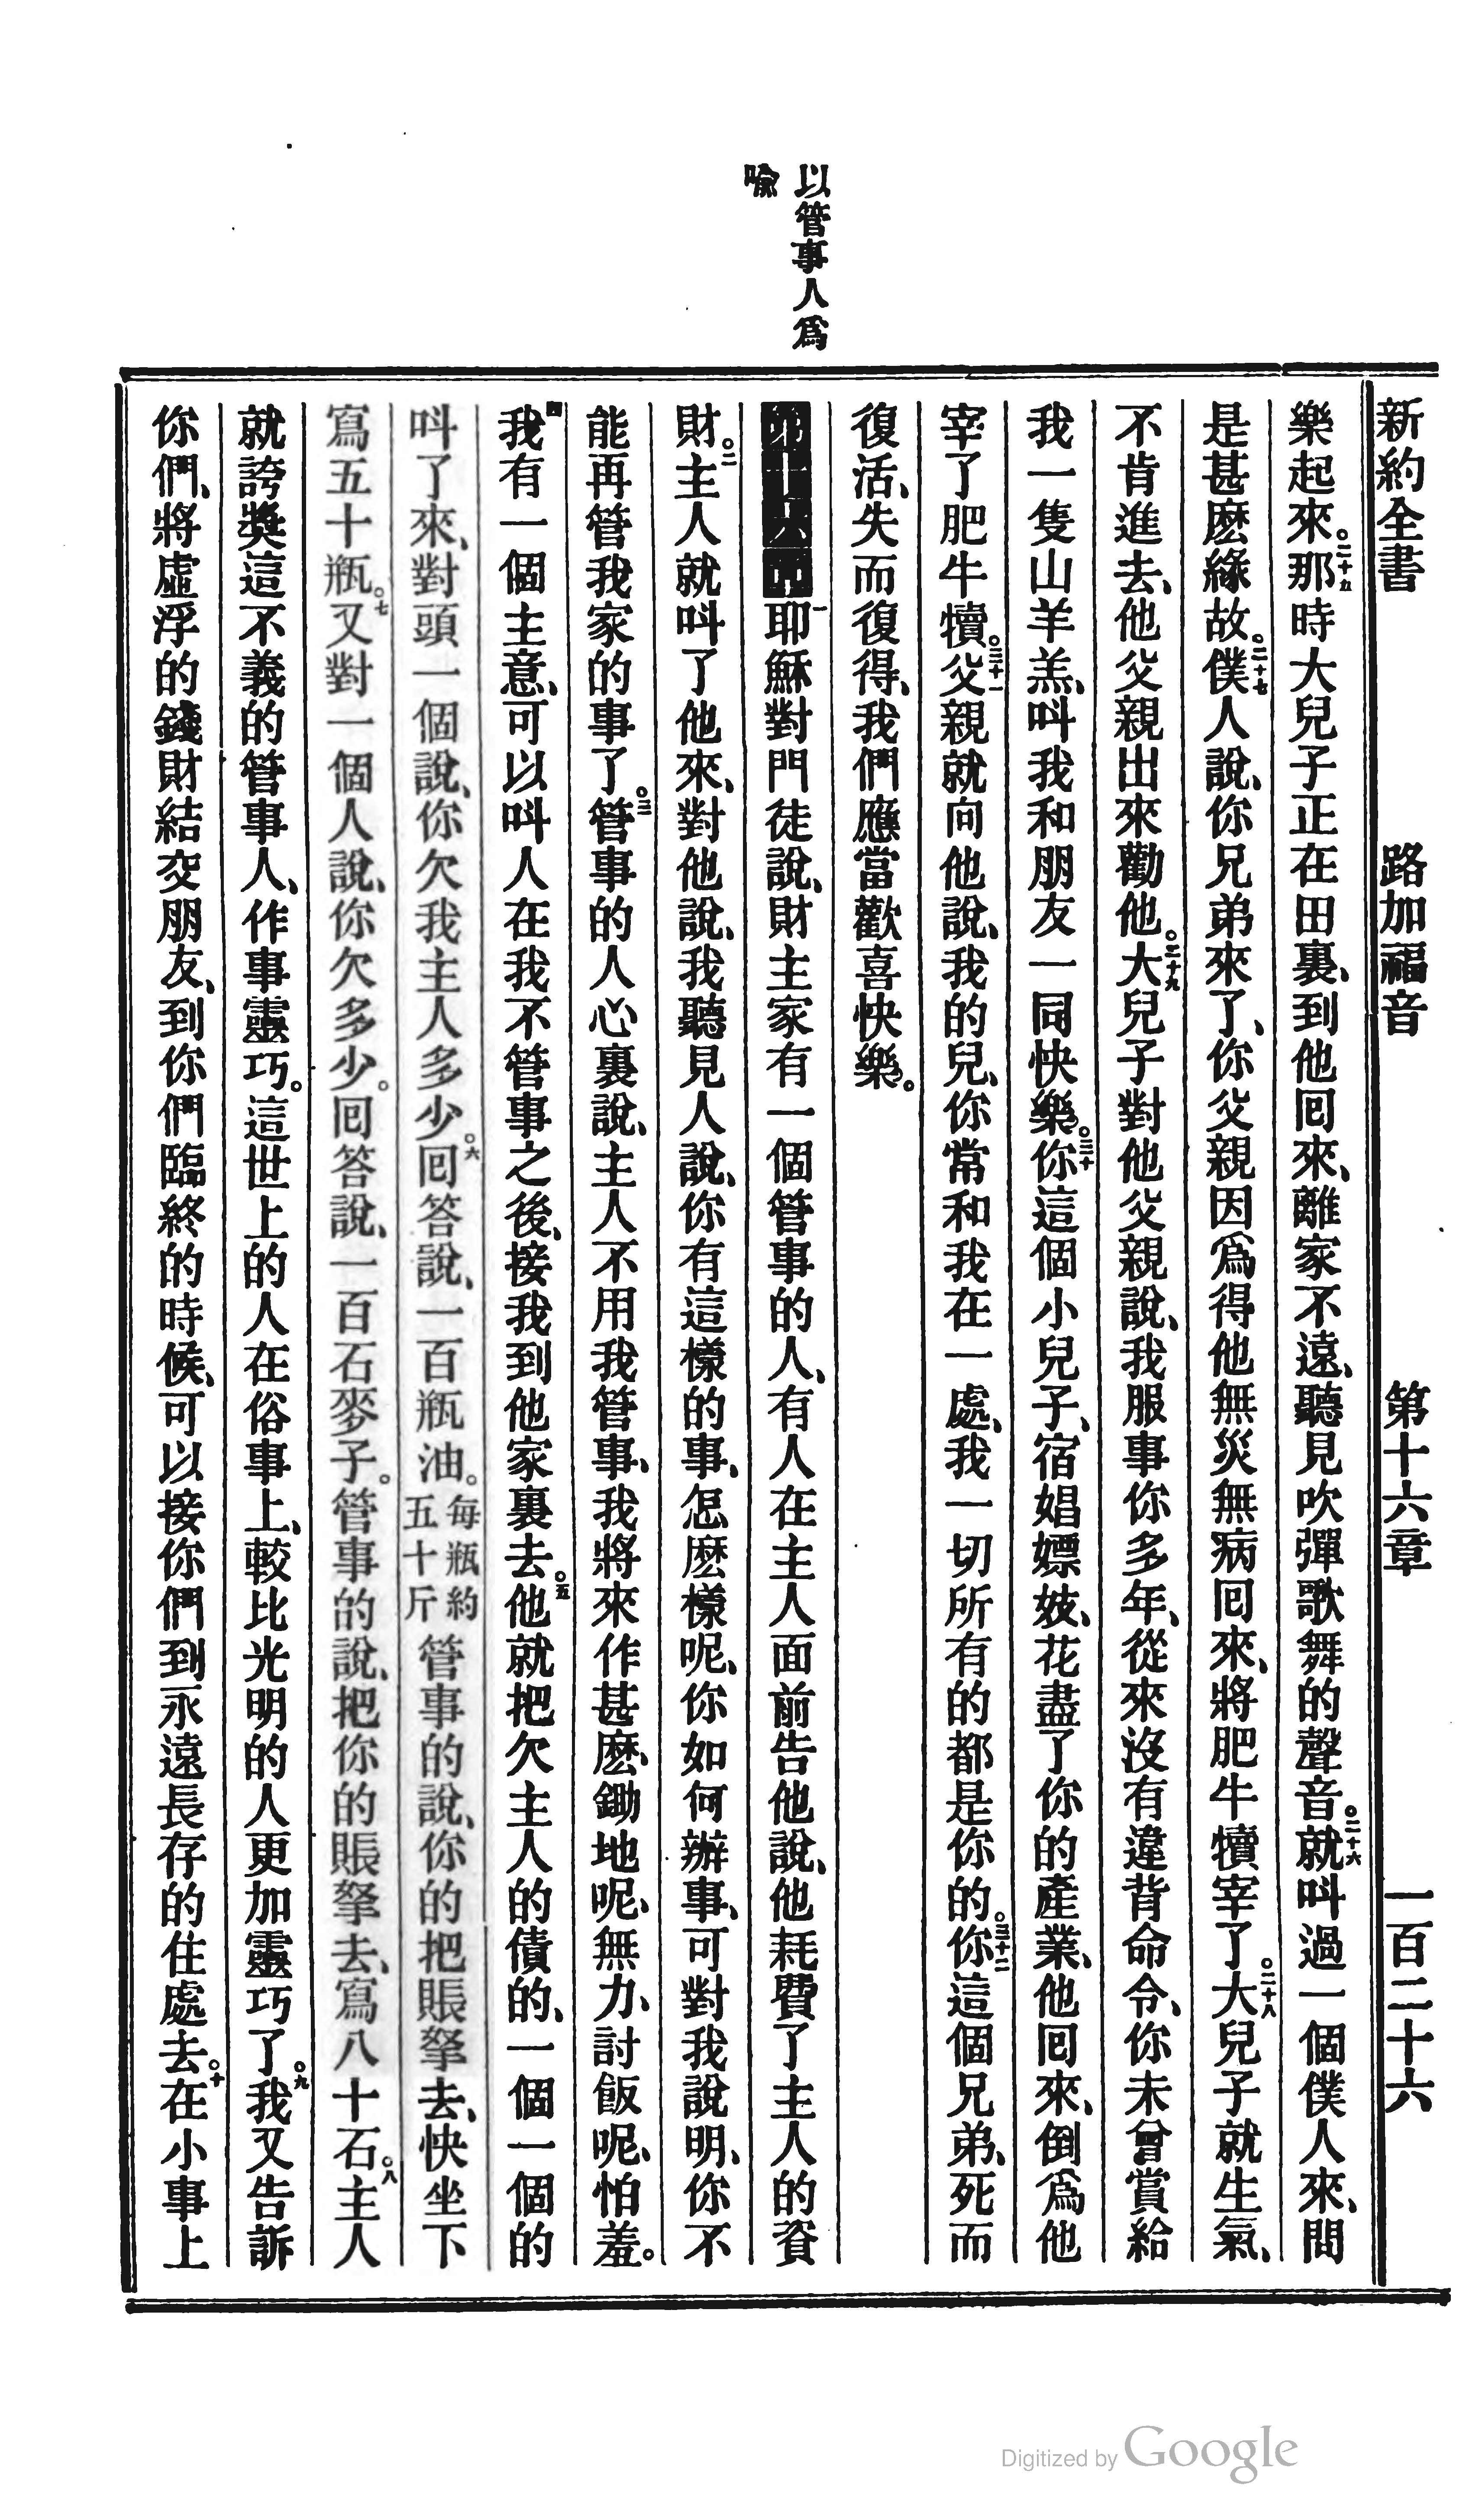 新約全書 路加福音 第十六章 一百二十六
樂起來。二十五那時大兒子正在田裏、到他囘來、離家不遠、聽見吹彈歌舞的聲音。二十六就叫過一個僕人來、問
是甚麽緣故。二十七僕人說、你兄弟來了、你父親因爲得他無災無病囘來、將肥牛犢宰了。二十八大兒子就生氣、
不肯進去、他父親出來勸他。二十九大兒子對他父親說、我服事你多年、從來沒有違背命令、你未曾賞給
我一隻山羊羔、叫我和朋友一同快樂。三十你這個小兒子、宿娼嫖妓、花盡了你的產業、他囘來、倒爲他
宰了肥牛犢。三十一父親就向他說、我的兒、你常和我在一處、我一切所有的都是你的。三十二你這個兄弟、死而
復活、失而復得、我們應當歡喜快樂。
以管事人爲
喩
一耶穌對門徒說、財主家有一個管事的人、有人在主人面前告他說、他耗費了主人的資
財。二主人就叫了他來、對他說、我聽見人說、你有這樣的事、怎麽樣呢、你如何辦事、可對我說明、你不
能再管我家的事了。三管事的人心裏說、主人不用我管事、我將來作甚麽、鋤地呢、無力、討飯呢、怕羞。
四我有一個主意、可以叫人在我不管事之後、接我到他家裏去。五他就把欠主人的債的、一個一個的
叫了來、對頭一個說、你欠我主人多少。六囘答說、一百瓶油。每瓶約五十斤管事的說、你的把賬拏去、快坐下
寫五十瓶。七又對一個人說、你欠多少。囘答說、一百石麥子。管事的說、把你的賬拏去、寫八十石。八主人
就誇奬這不義的管事人、作事靈巧。這世上的人在俗事上、較比光明的人更加靈巧了。九我又告訴
你們、將虛浮的錢財結交朋友、到你們臨終的時候、可以接你們到永遠長存的住處去。十在小事上
Digitized by Google